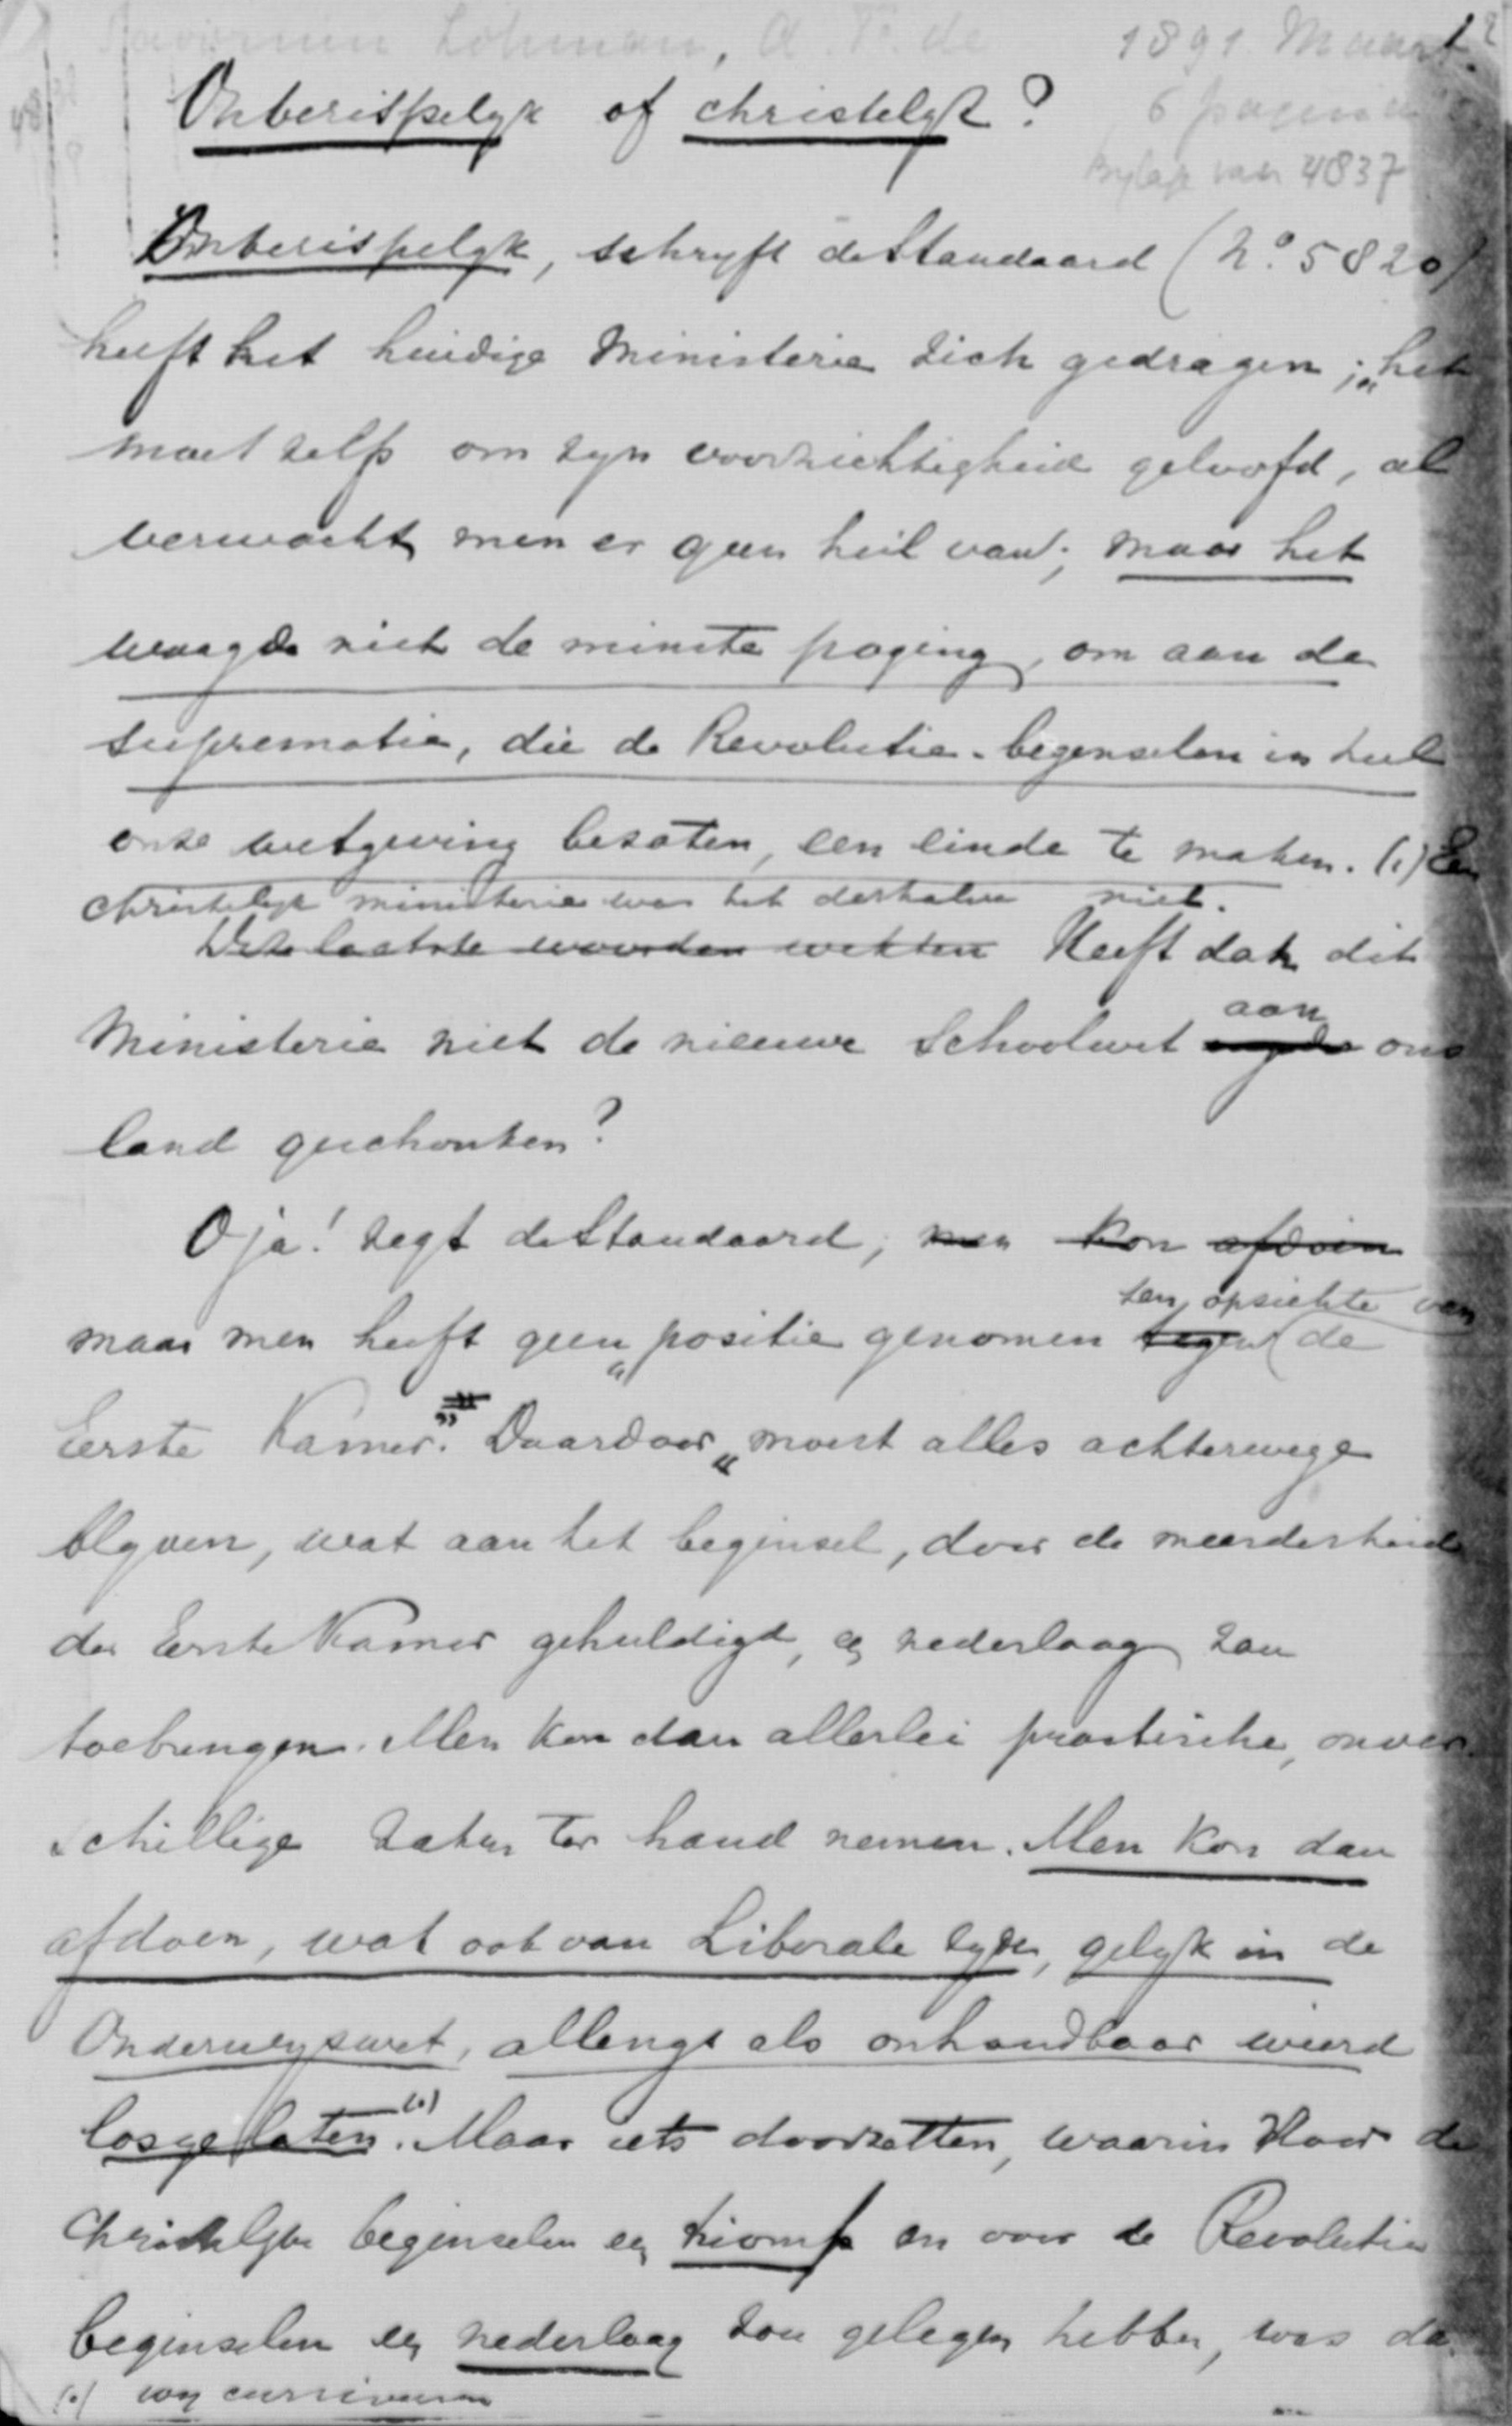 Savornin Lohman, A. F. de
1891. Maart.
Onberispelyk of christelyk?
6 pagina's
Bylage van 4837
Onberispelyk, schryft de Standaard (No. 5820)
heeft het huidige Ministerie zich gedragen; „het
moet zelfs om zyn voorzichtigheid geloofd, al
verwacht men er geen heil van; maar het
waagde niet de minste poging, om aan de
suprematie, die de Revolutie-beginselen in heel
onze wetgeving bezaten, een einde te maken. (1) Een
christelyk ministerie was het derhalve niet.
Deze laatste woorden wekten Heeft dan dit
Ministerie niet de nieuwe Schoolwet aan ons
land geschonken?
O ja! zegt de Standaard; men kon afdoen
maar men heeft geen „positie genomen tegen ten opzichte van de
Eerste Kamer." Daardoor „moest alles achterwege
blyven, wat aan het beginsel, door de meerderheid
der Eerste Kamer gehuldigd, een nederlaag zou
toebrengen. Men kon dan allerlei practische, onver-
schillige zaken ter hand nemen. Men kon dan
afdoen, wat ook van Liberale zyde, gelyk in de
Onderwyswet, allengs als onhoudbaar wierd
losgelaten. (1) Maar iets doorzetten, waarin voor de
Christelyke beginselen een triomf en voor de Revolutie
beginselen een nederlaag zou gelegen hebben, was da
(1) wy cursiveeren